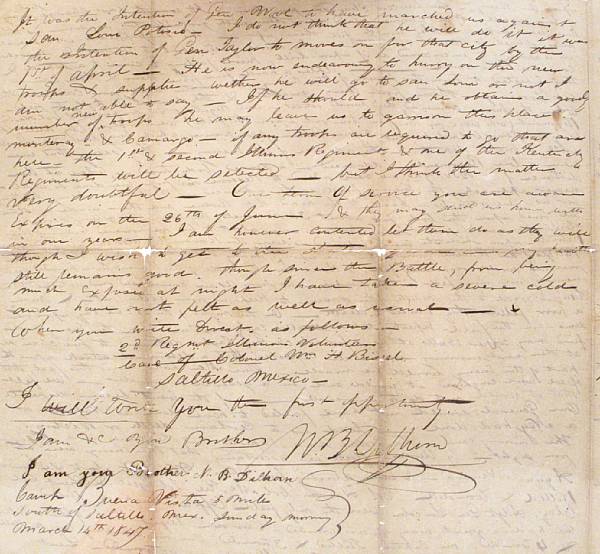 It was the Intention of Gen Wool to have marched us against
San Louis Potosi — I do not think that he will do it it was
the intention of Gen Taylor to moves on for that city by the
1st of April — He is now endeavoring to hurry on the new
troops & supplies wether he will go to San Louis or not I
am not now able to say — If he should and he obtains a good
number of troops he may leave us to garrison this place
monterey & Camargo — if any troops are required to go that are
here — the 1st & second Illinois Regiments & one of the Kentucky
Regiments will be selected — but I think the matter
very doubtful — Our term Of service you are aware
Expires on the 26th of June & they may send us home with
in our years — I am however contented let them do as they will
though I wish to get
still remains good. though since the Battle, from being
much exposed at night I have taken a severe cold
and have not felt as well as usual —
When you write Direct as follows —
2d Regmt Illinois Volunteers
Care of Colonel Wm H Bissel
Saltillo Mexico —
I will write You the first oppertunity.
I am &c Your Brother N B Dilhorn
I am your Brother N. B. Dilhorn
Camp Buena Vista 5 Mile
South of Saltillo Mex. Sunday morning
March 14th 1847